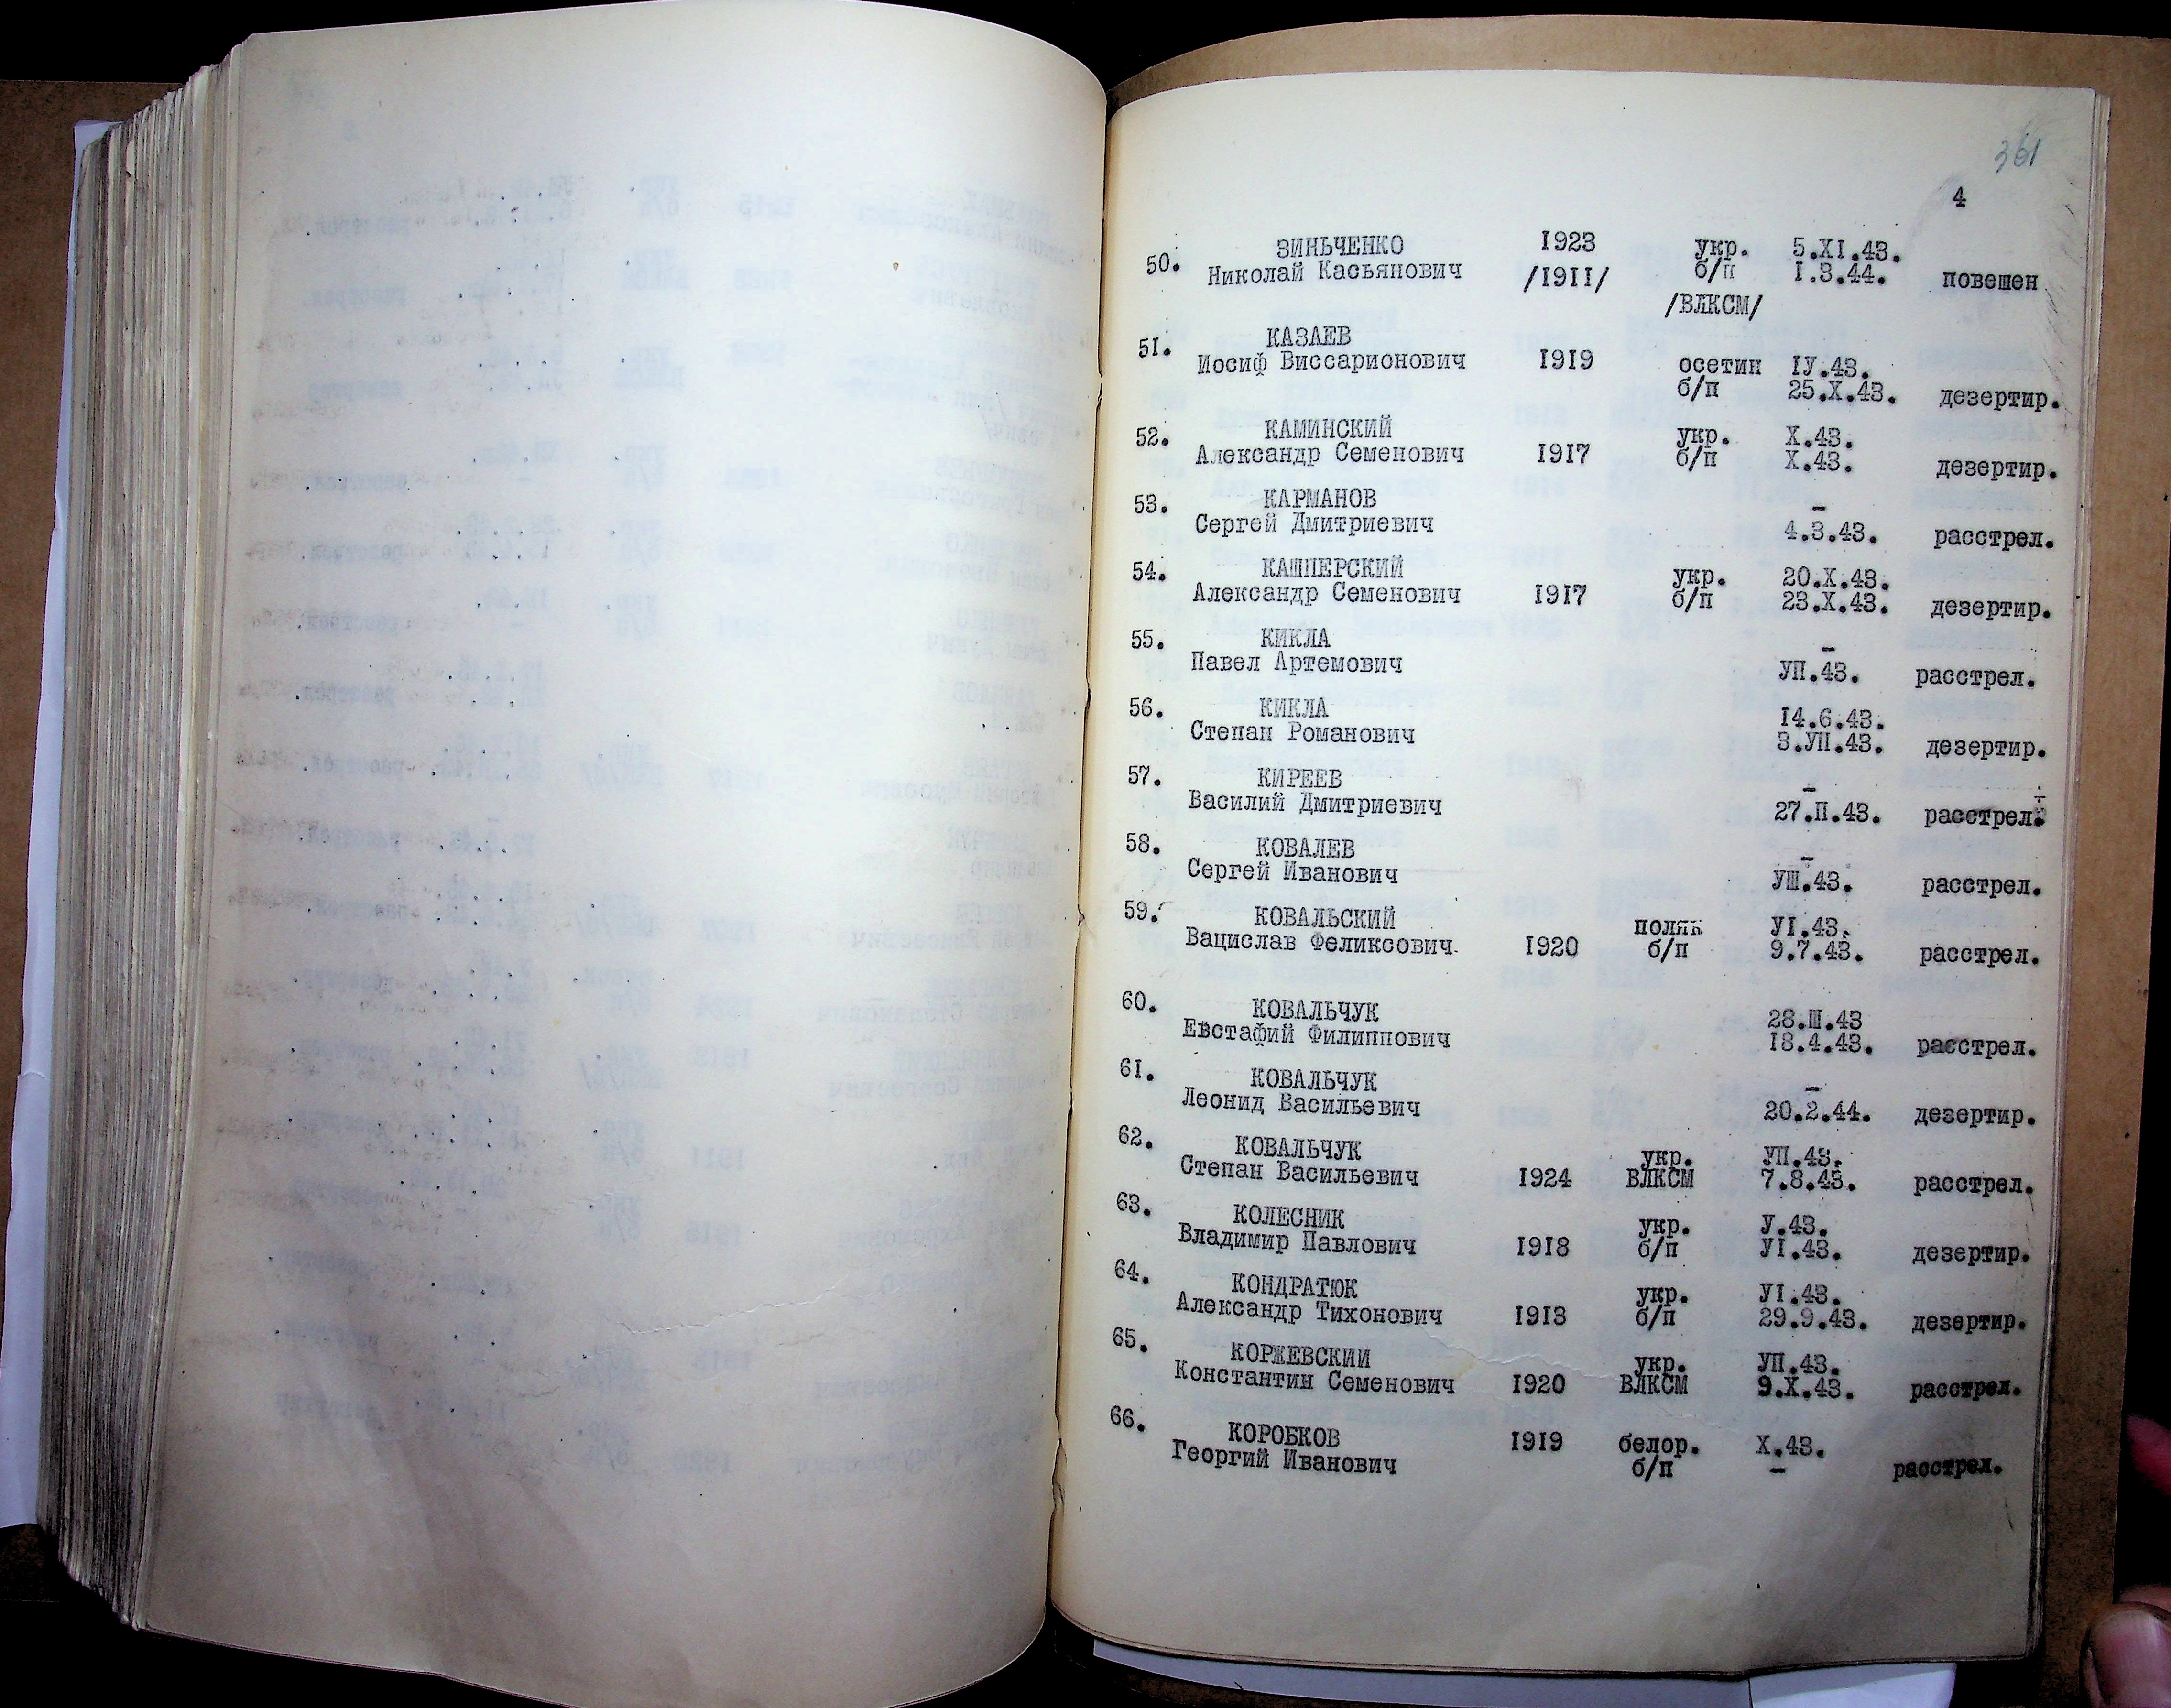 361
4
50. ЗИНЬЧЕНКО 1923 укр. 5.XI.43.
Николай Касьянович /1911/ б/п 1.3.44. повешен
/ВЛКСМ/
51. КАЗАЕВ
Иосиф Виссарионович 1919 осетин IУ.43.
б/п 25.X.43. дезертир.
52. КАМИНСКИЙ укр. X.43.
Александр Семенович 1917 б/п X.43. дезертир.
53. КАРМАНОВ –
Сергей Дмитриевич 4.3.43. расстрел.
54. КАШПЕРСКИЙ укр. 20.X.43.
Александр Семенович 1917 б/п 23.X.43. дезертир.
55. КИКЛА –
Павел Артемович УП.43. расстрел.
56. КИКЛА 14.6.43.
Степан Романович 3.УП.43. дезертир.
57. КИРЕЕВ –
Василий Дмитриевич 27.П.43. расстрел.
58. КОВАЛЕВ –
Сергей Иванович УШ.43. расстрел.
59. КОВАЛЬСКИЙ поляк УI.43.
Вацислав Феликсович 1920 б/п 9.7.43. расстрел.
60. КОВАЛЬЧУК 28.Ш.43
Евстафий Филиппович 18.4.43. расстрел.
61. КОВАЛЬЧУК –
Леонид Васильевич 20.2.44. дезертир.
62. КОВАЛЬЧУК укр. УП.43.
Степан Васильевич 1924 ВЛКСМ 7.8.43. расстрел.
63. КОЛЕСНИК укр. У.43.
Владимир Павлович 1918 б/п УI.43. дезертир.
64. КОНДРАТЮК укр. УI.43.
Александр Тихонович 1913 б/п 29.9.43. дезертир.
65. КОРЖЕВСКИЙ укр. УП.43.
Константин Семенович 1920 ВЛКСМ 9.X.43. расстрел.
66. КОРОБКОВ 1919 белор. X.43.
Георгий Иванович б/п – расстрел.